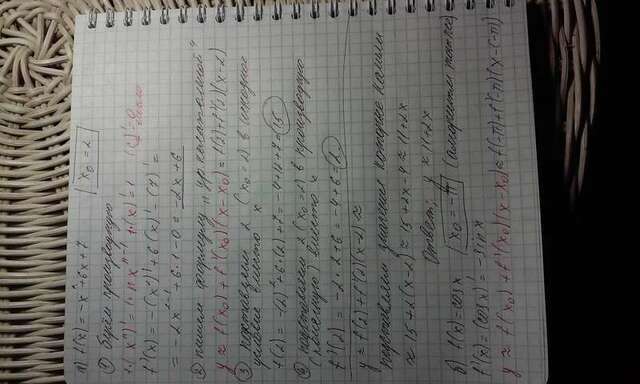 а) f(x) = -x² + 6x + 7 x₀ = 2
① берём производную
1·(xⁿ)' = 1·n xⁿ⁻¹ 1·(x)' = 1 (c)' = 0
число
f'(x) = -(x²)' + 6(x)' - (7)' =
= -2x²⁻¹ + 6·1 - 0 = -2x + 6
② пишем формулу „ур. касательной"
y ≈ f(x₀) + f'(x₀)(x-x₀) = f(2) + f'(2)(x-2)
③ подставляем 2 (x₀ = 2) в исходное
условие вместо x
f(2) = -(2)² + 6·(2) + 7 = -4 + 12 + 7 = 15
④ подставляем 2 (x₀ = 2) в производную
вместо x
f'(2) = -2·2 + 6 = -4 + 6 = 2
y ≈ f(2) + f'(2)(x-2) ≈
подставляем значения которые нашли
≈ 15 + 2(x-2) ≈ 15 + 2x - 4 ≈ 11 + 2x
Ответ: y ≈ 11 + 2x
б) f(x) = cos x x₀ = -π (алгоритм тот же)
f'(x) = (cos x)' = -sin x
y ≈ f(x₀) + f'(x₀)(x-x₀) ≈ f(-π) + f'(-π)(x-(-π))